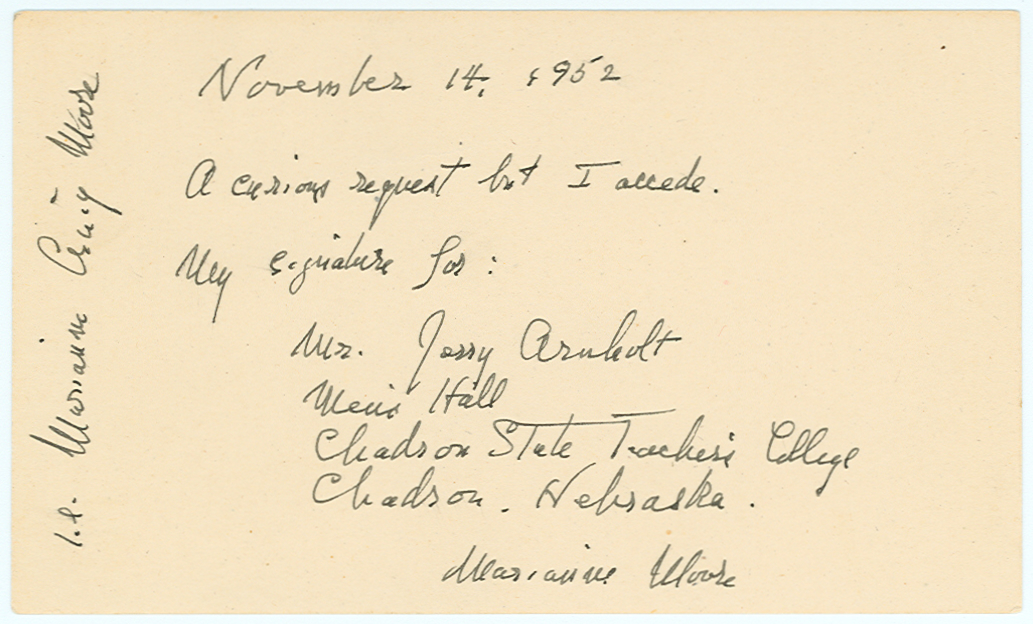 November 14, 1952
A curious request but I accede.
My signature for:
Mr. Jerry Arnholt
Men's Hall
Chadron State Teachers College
Chadron, Nebraska.
Marianne Moore
i.e. Marianne Craig Moore